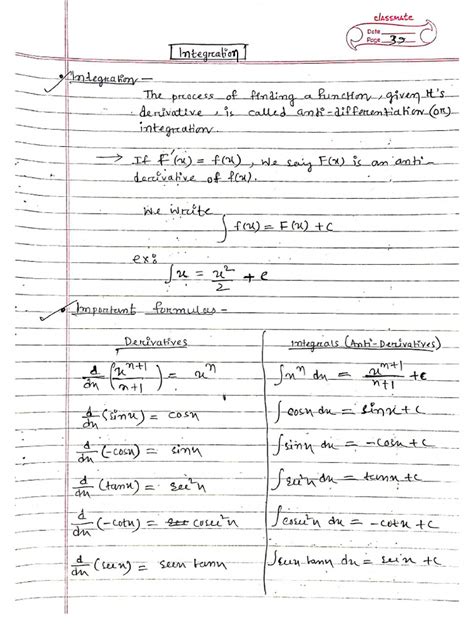 classmate
Date
Page 39
Integration
Integration —
The process of finding a function, given it's
derivative, is called anti-differentiation (or)
integration.
→ If F'(x) = f(x), we say F(x) is an anti-
derivative of f(x).
We write
∫ f(x) = F(x) + c
ex:
∫x = x²/2 + c
Important formulas -
Derivatives	Integrals (Anti-Derivatives)
d/dx (xⁿ⁺¹/n+1) = xⁿ	∫xⁿ dx = xⁿ⁺¹/n+1 + c
d/dx (sinx) = cosx	∫cosx dx = sinx + c
d/dx (-cosx) = sinx	∫sinx dx = -cosx + c
d/dx (tanx) = sec²x	∫sec²x dx = tanx + c
d/dx (-cotx) = cosec²x	∫cosec²x dx = -cotx + c
d/dx (secx) = secx tanx	∫secx tanx dx = secx + c